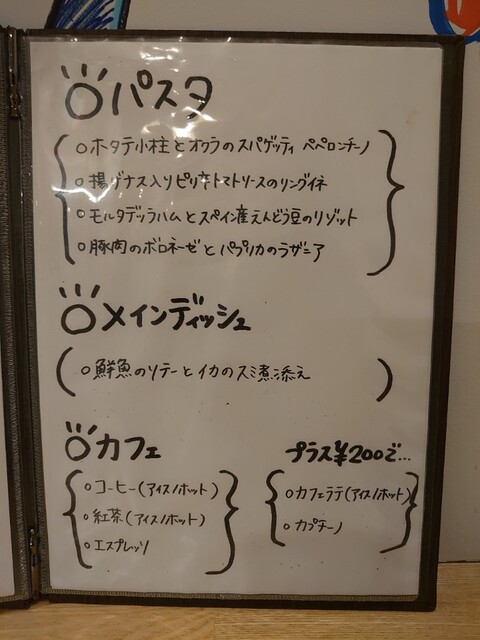 パスタ
ホタテ小柱とオクラのスパゲッティ ペペロンチーノ
揚げナス入りピリ辛トマトソースのリングイネ
モルタデッラハムとスペイン産えんどう豆のリゾット
豚肉のボロネーゼとパプリカのラザニア
メインディッシュ
鮮魚のソテーとイカのスミ煮添え
カフェ
コーヒー(アイス/ホット)
紅茶(アイス/ホット)
エスプレッソ
プラス¥200で...
カフェラテ(アイス/ホット)
カプチーノ